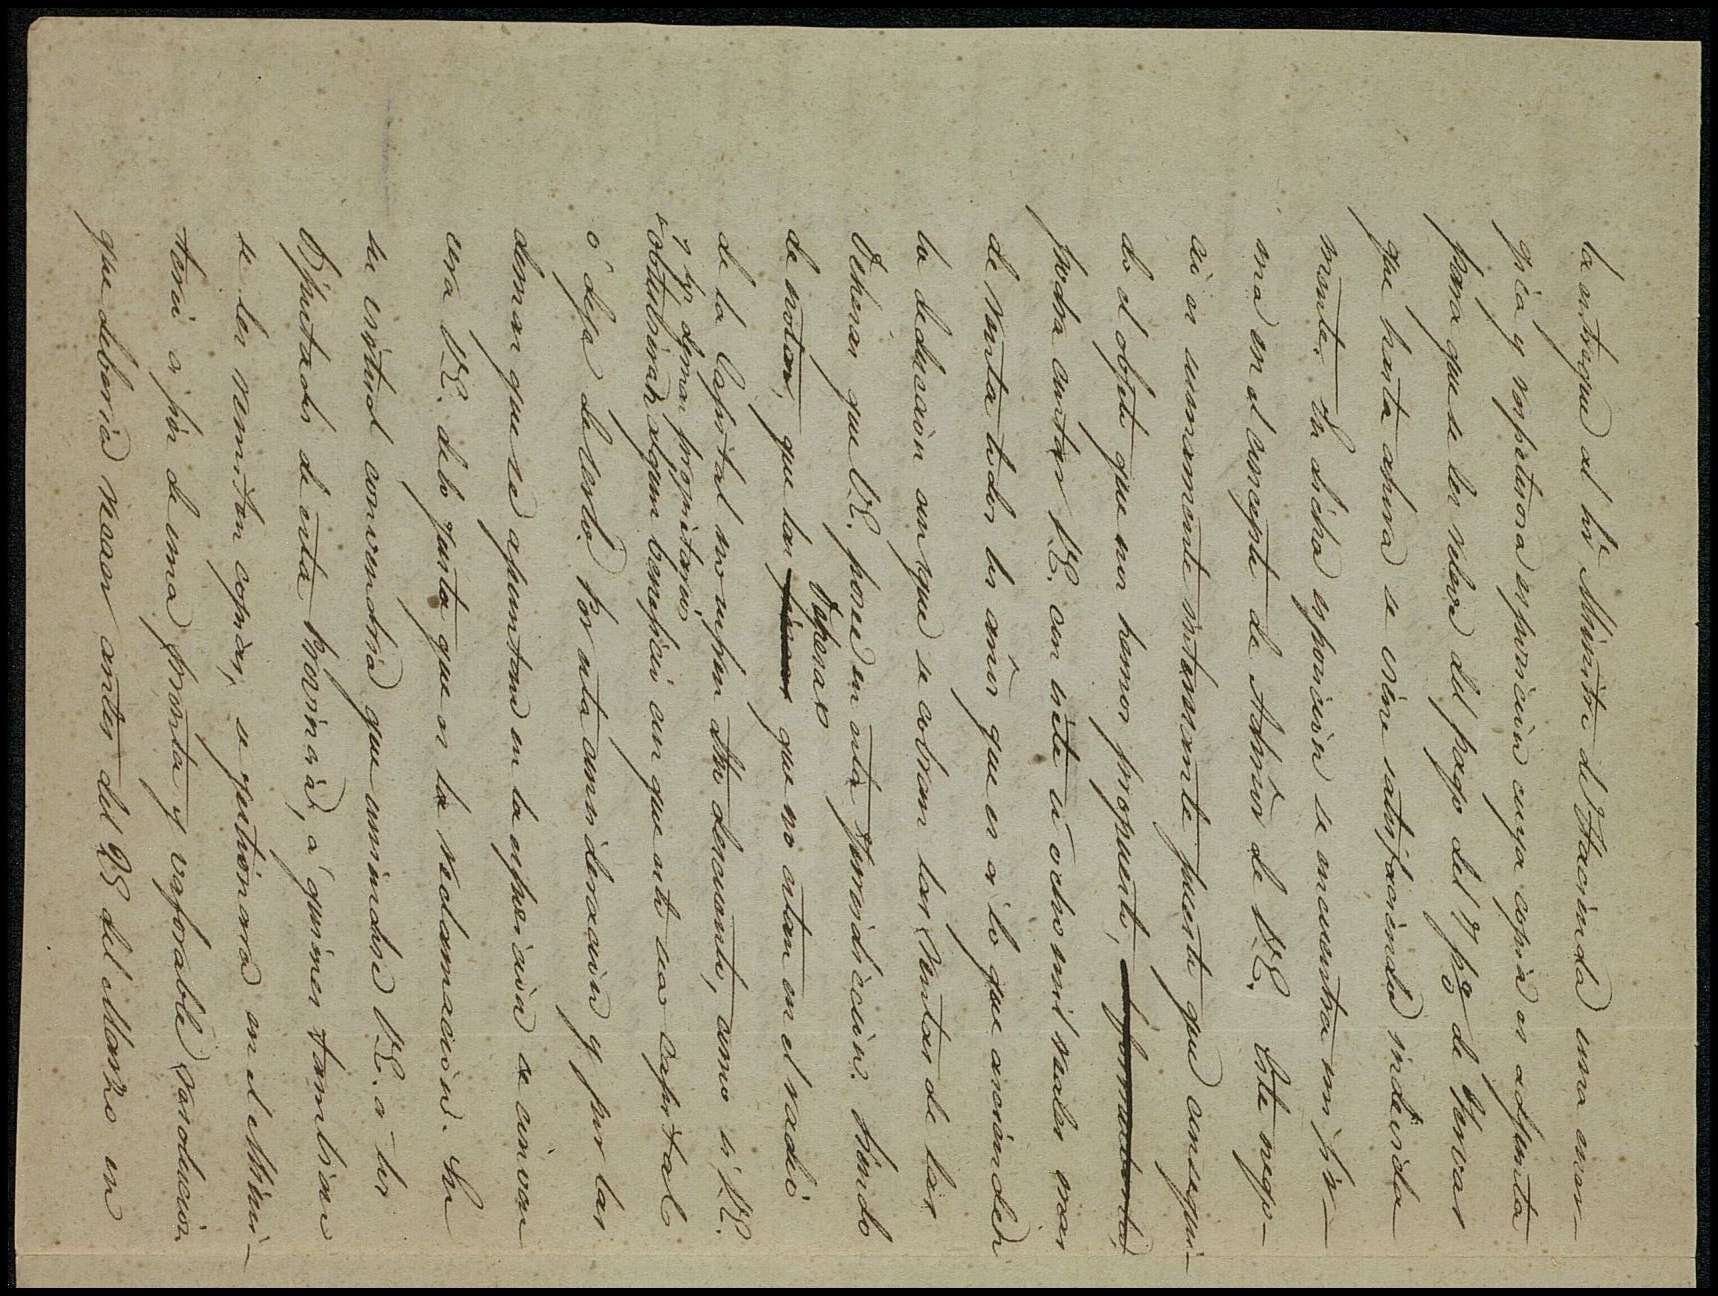 la entregue al Sõr Ministro de Hacienda una enér-
gica y respetuosa esposicion cuya copia es adjunta
para que se les releve del pago del 7 p% de Yervas
que hasta ahora se viene satisfaciendo indevida
mente. En dicha esposicion se encuentra un pár-
rafo en el concepto de Admõr de V.E. Este nego-
cio es sumamente interesante puesto que consegui-
do el objeto que nos hemos propuesto,
podra contar V.E. con siete ú ocho mil reales mas
de renta todos los años que es a lo que asciende
la deducsion con que se cobran las rentas de las
Dehesas que V.E. posee en esta Jurisdiccion. Siendo
de notar, que las Dehesas que no estan en el radio
de la Capital no sufren dho descuento, como si V.E.
y los demas propietarios
obtubieran algun beneficio con que esto sea capital
ó deje de serlo. Por esta consideracion y por las
demas que se apuntan en la esposicion se conven
cera V.E. de lo justa que es la reclamacion. En
su virtud convendria que escriviese V.E. a los
Diputados de esta Provincia, á quienes tambien
se les remiten copias, se gestionara en el Minis-
terio a fin de una pronta y vaforable resolucion
que deberia recaer antes del 25 del Marzo en